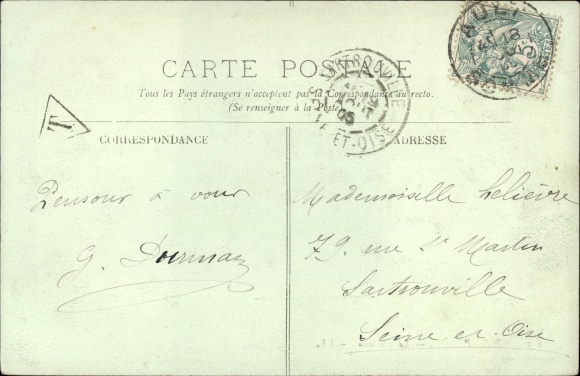 CARTE POSTALE
Tous les Pays étrangers n'acceptent pas la Correspondance au recto.
(Se renseigner à la Poste)
T
CORRESPONDANCE
ADRESSE
Pensour à vour
G. Dourman
Mademoiselle Lelièvre
79. rue St Martin
Sartrouville
Seine et Oise
SARTROUVILLE
AOUT
05
SEINE-ET-OISE